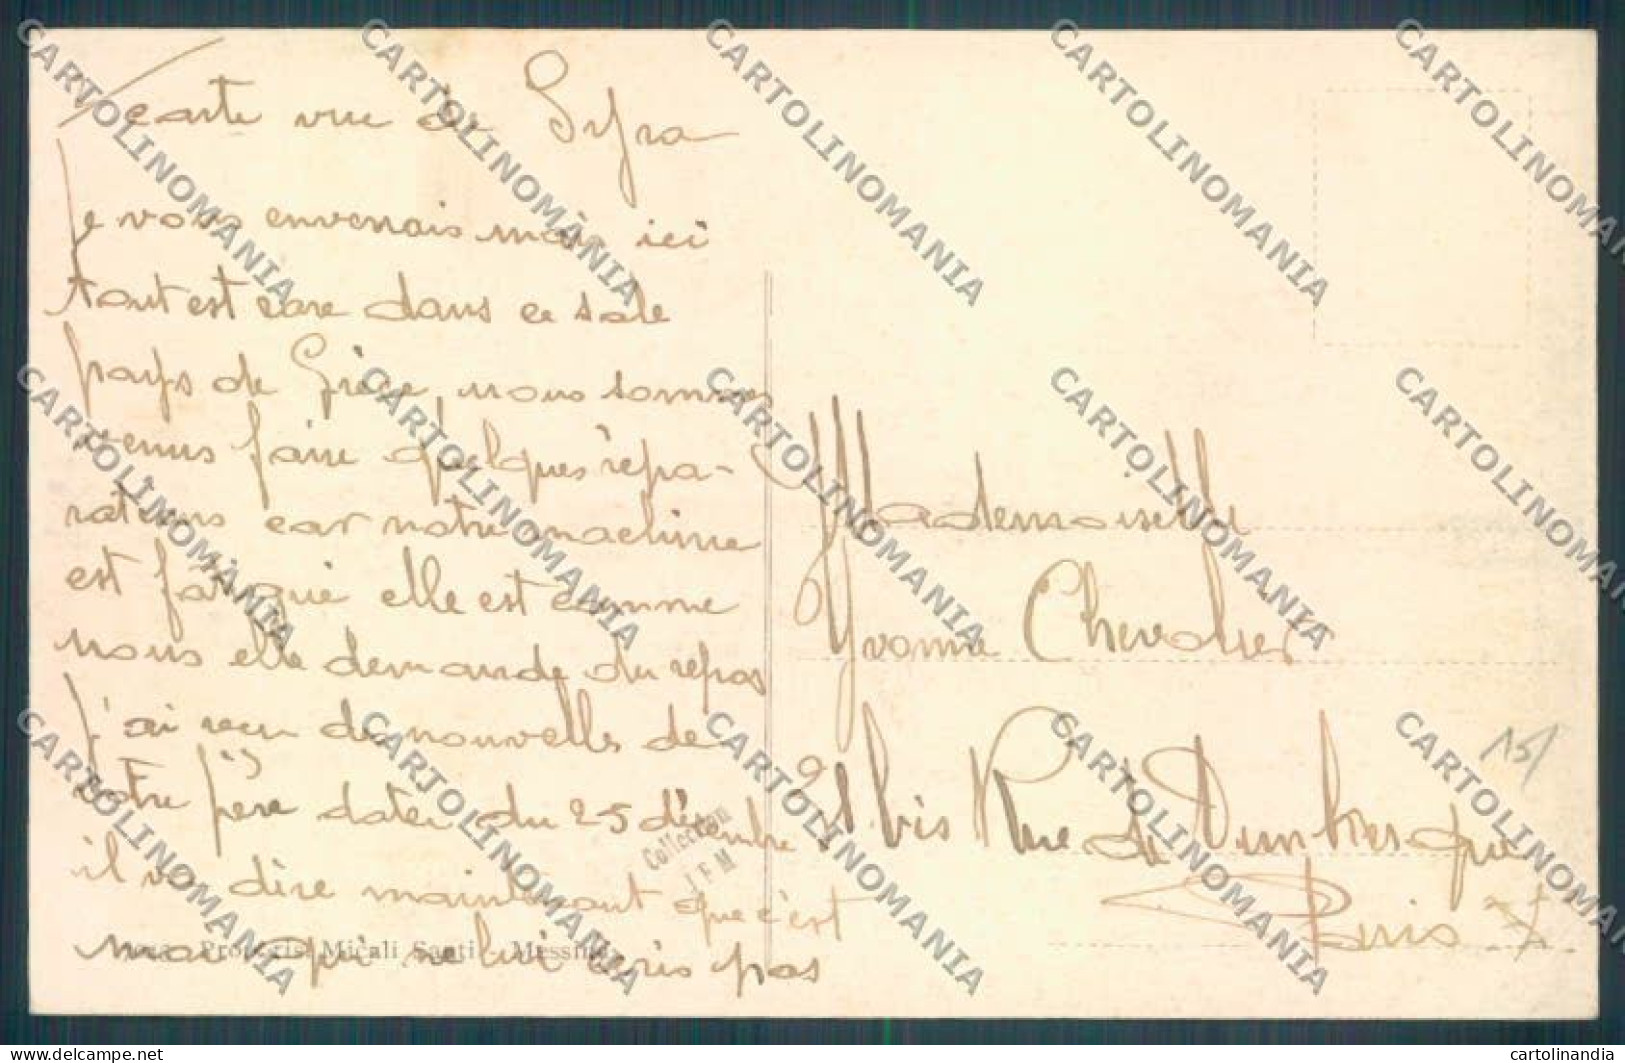 carte vue de Syra
je vous enverrais mais ici
tout est care dans ce sale
pays de Grèce, nous sommes
venus faire quelques répa-
rations car notre machine
est fatiguée elle est comme
nous elle demande du repos
j'ai reçu de nouvelles de
votre père dater du 25 décembre
il va dire maintenant que c'est
moi qui ne lui écris pas
Propr. Ris. Micali Santi - Messina
Collection
J F M
Mademoiselle
Yvonne Chevalier
21 bis Rue de Dunkerque
Paris X
15/
CARTOLINOMANIA
Delcampe.net
cartolinandia